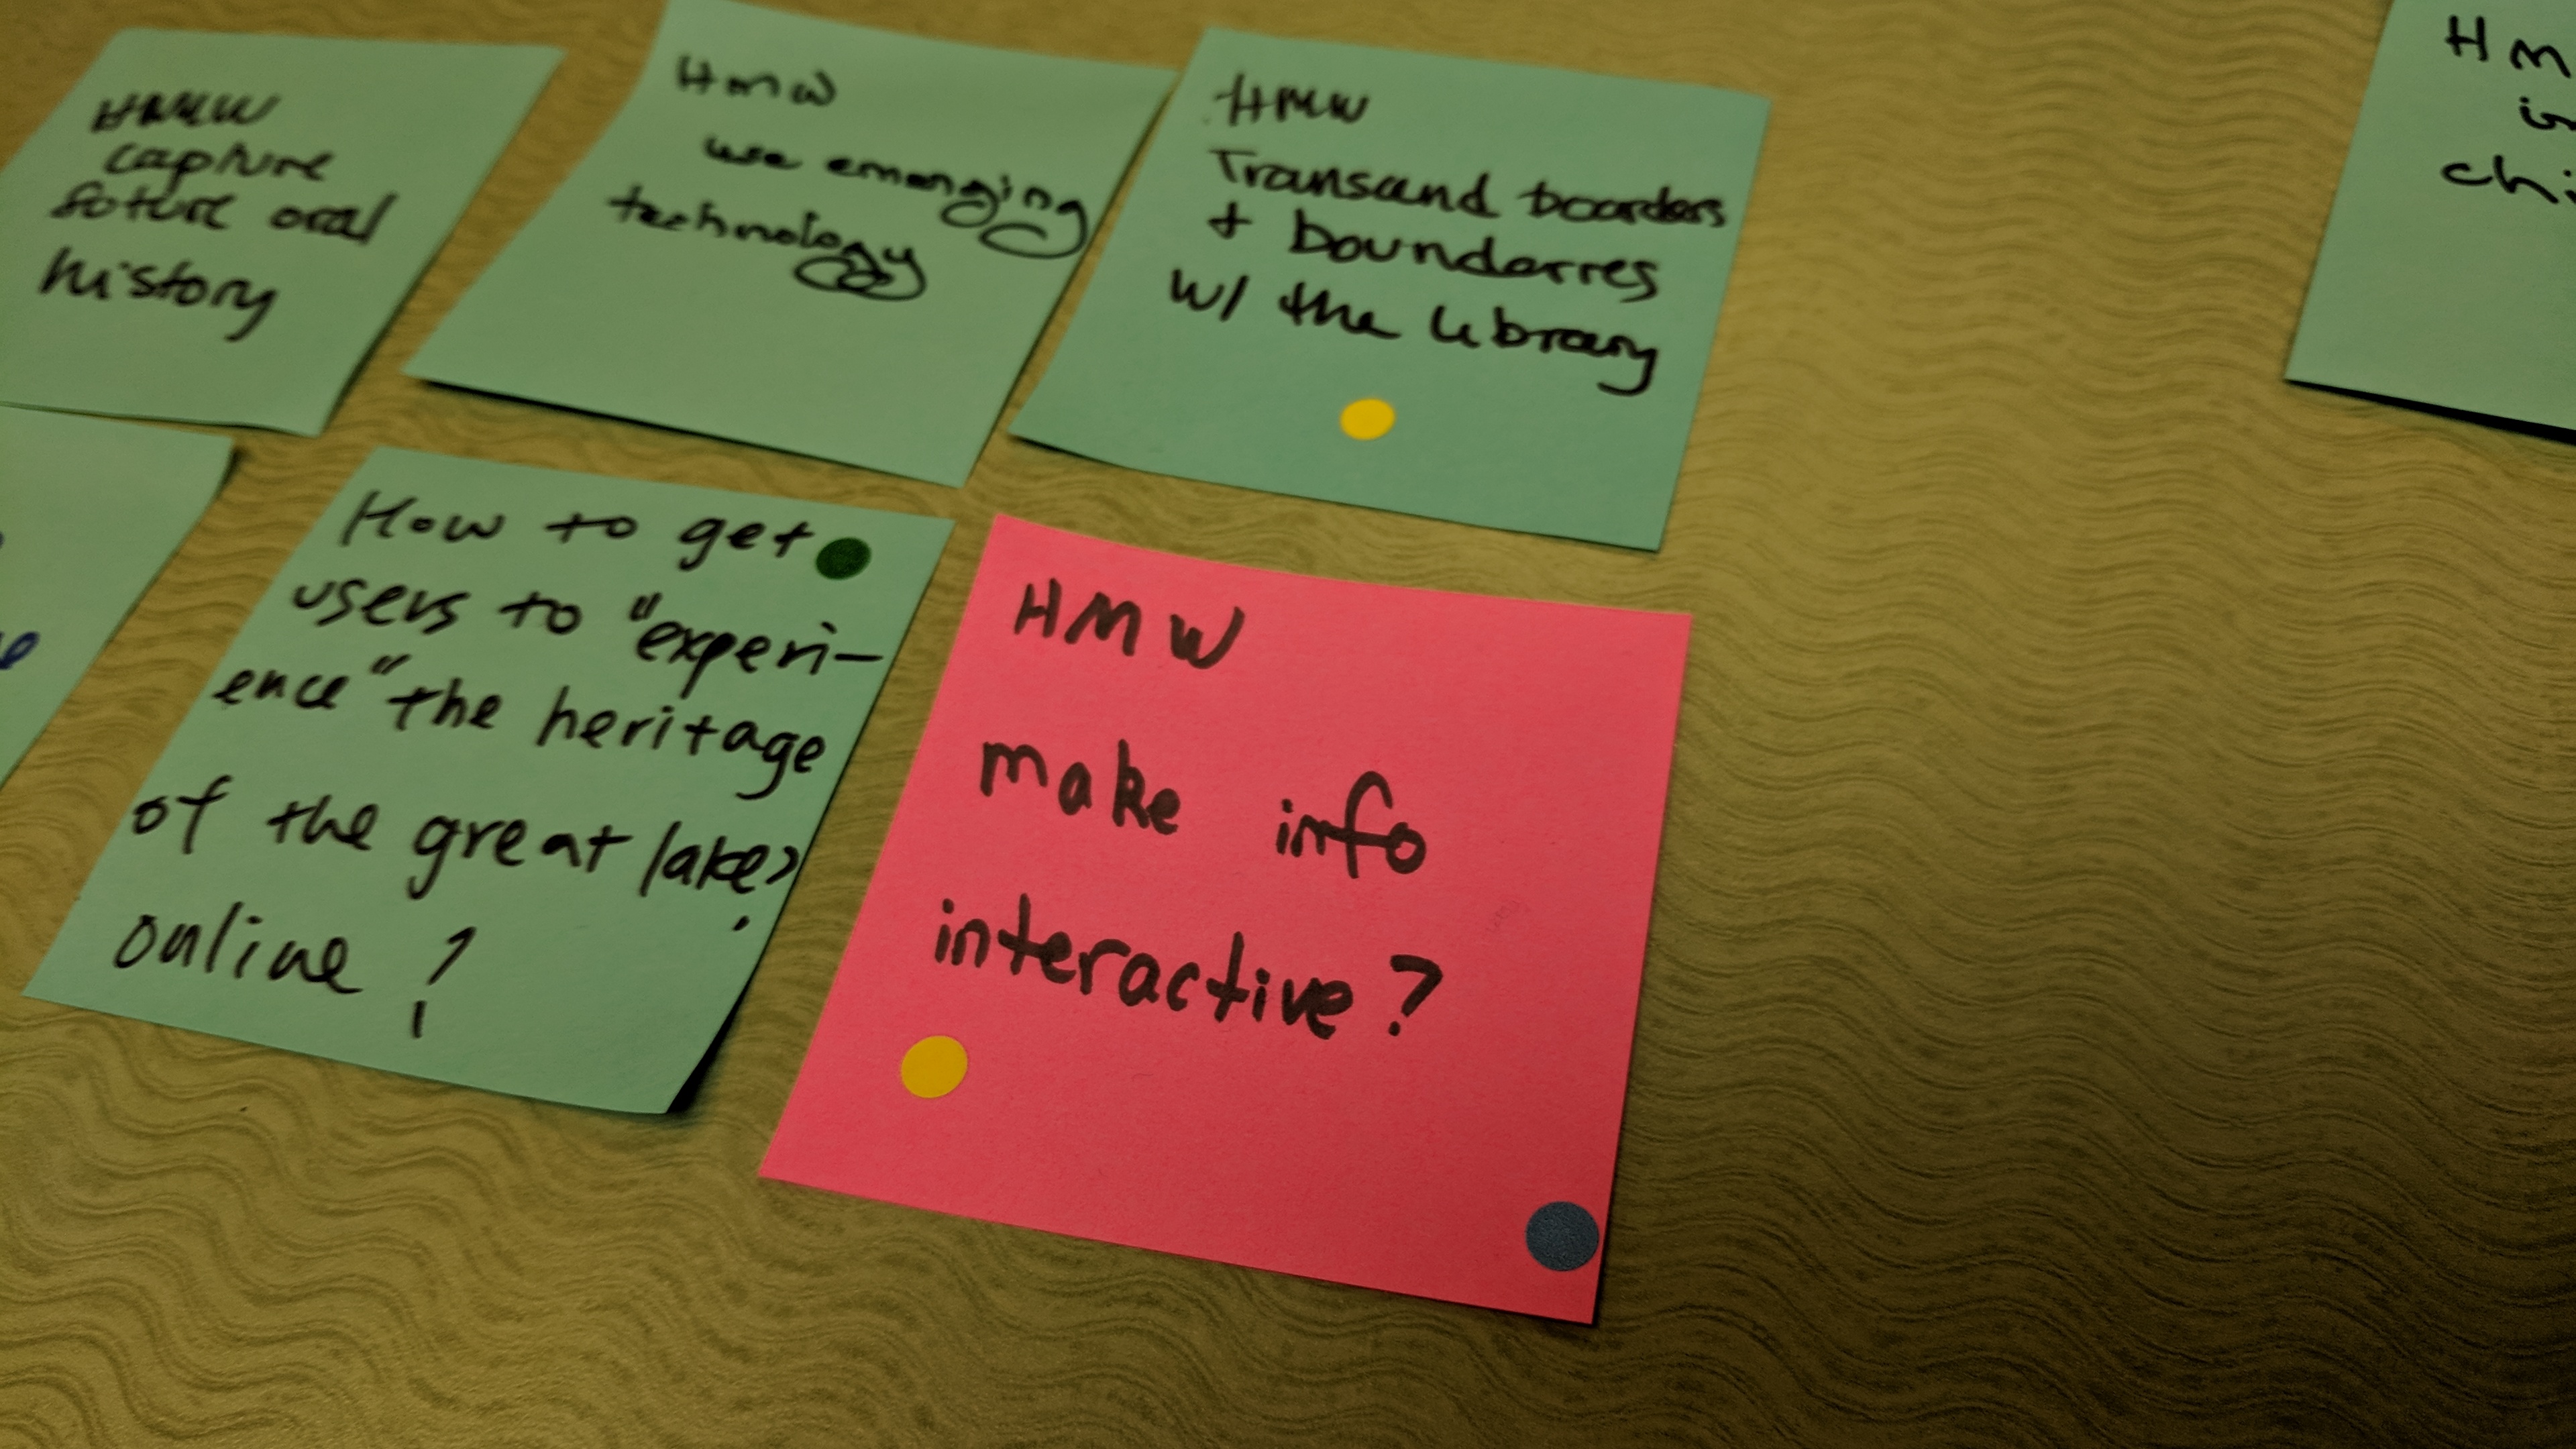 HMW
capture
future oral
history
HMW
use emerging
technology
HMW
Transand boarders
+ boundarres
w/ the library
HM
chi
How to get
users to "experi-
ence" the heritage
of the great lakes
online?
HMW
make info
interactive?